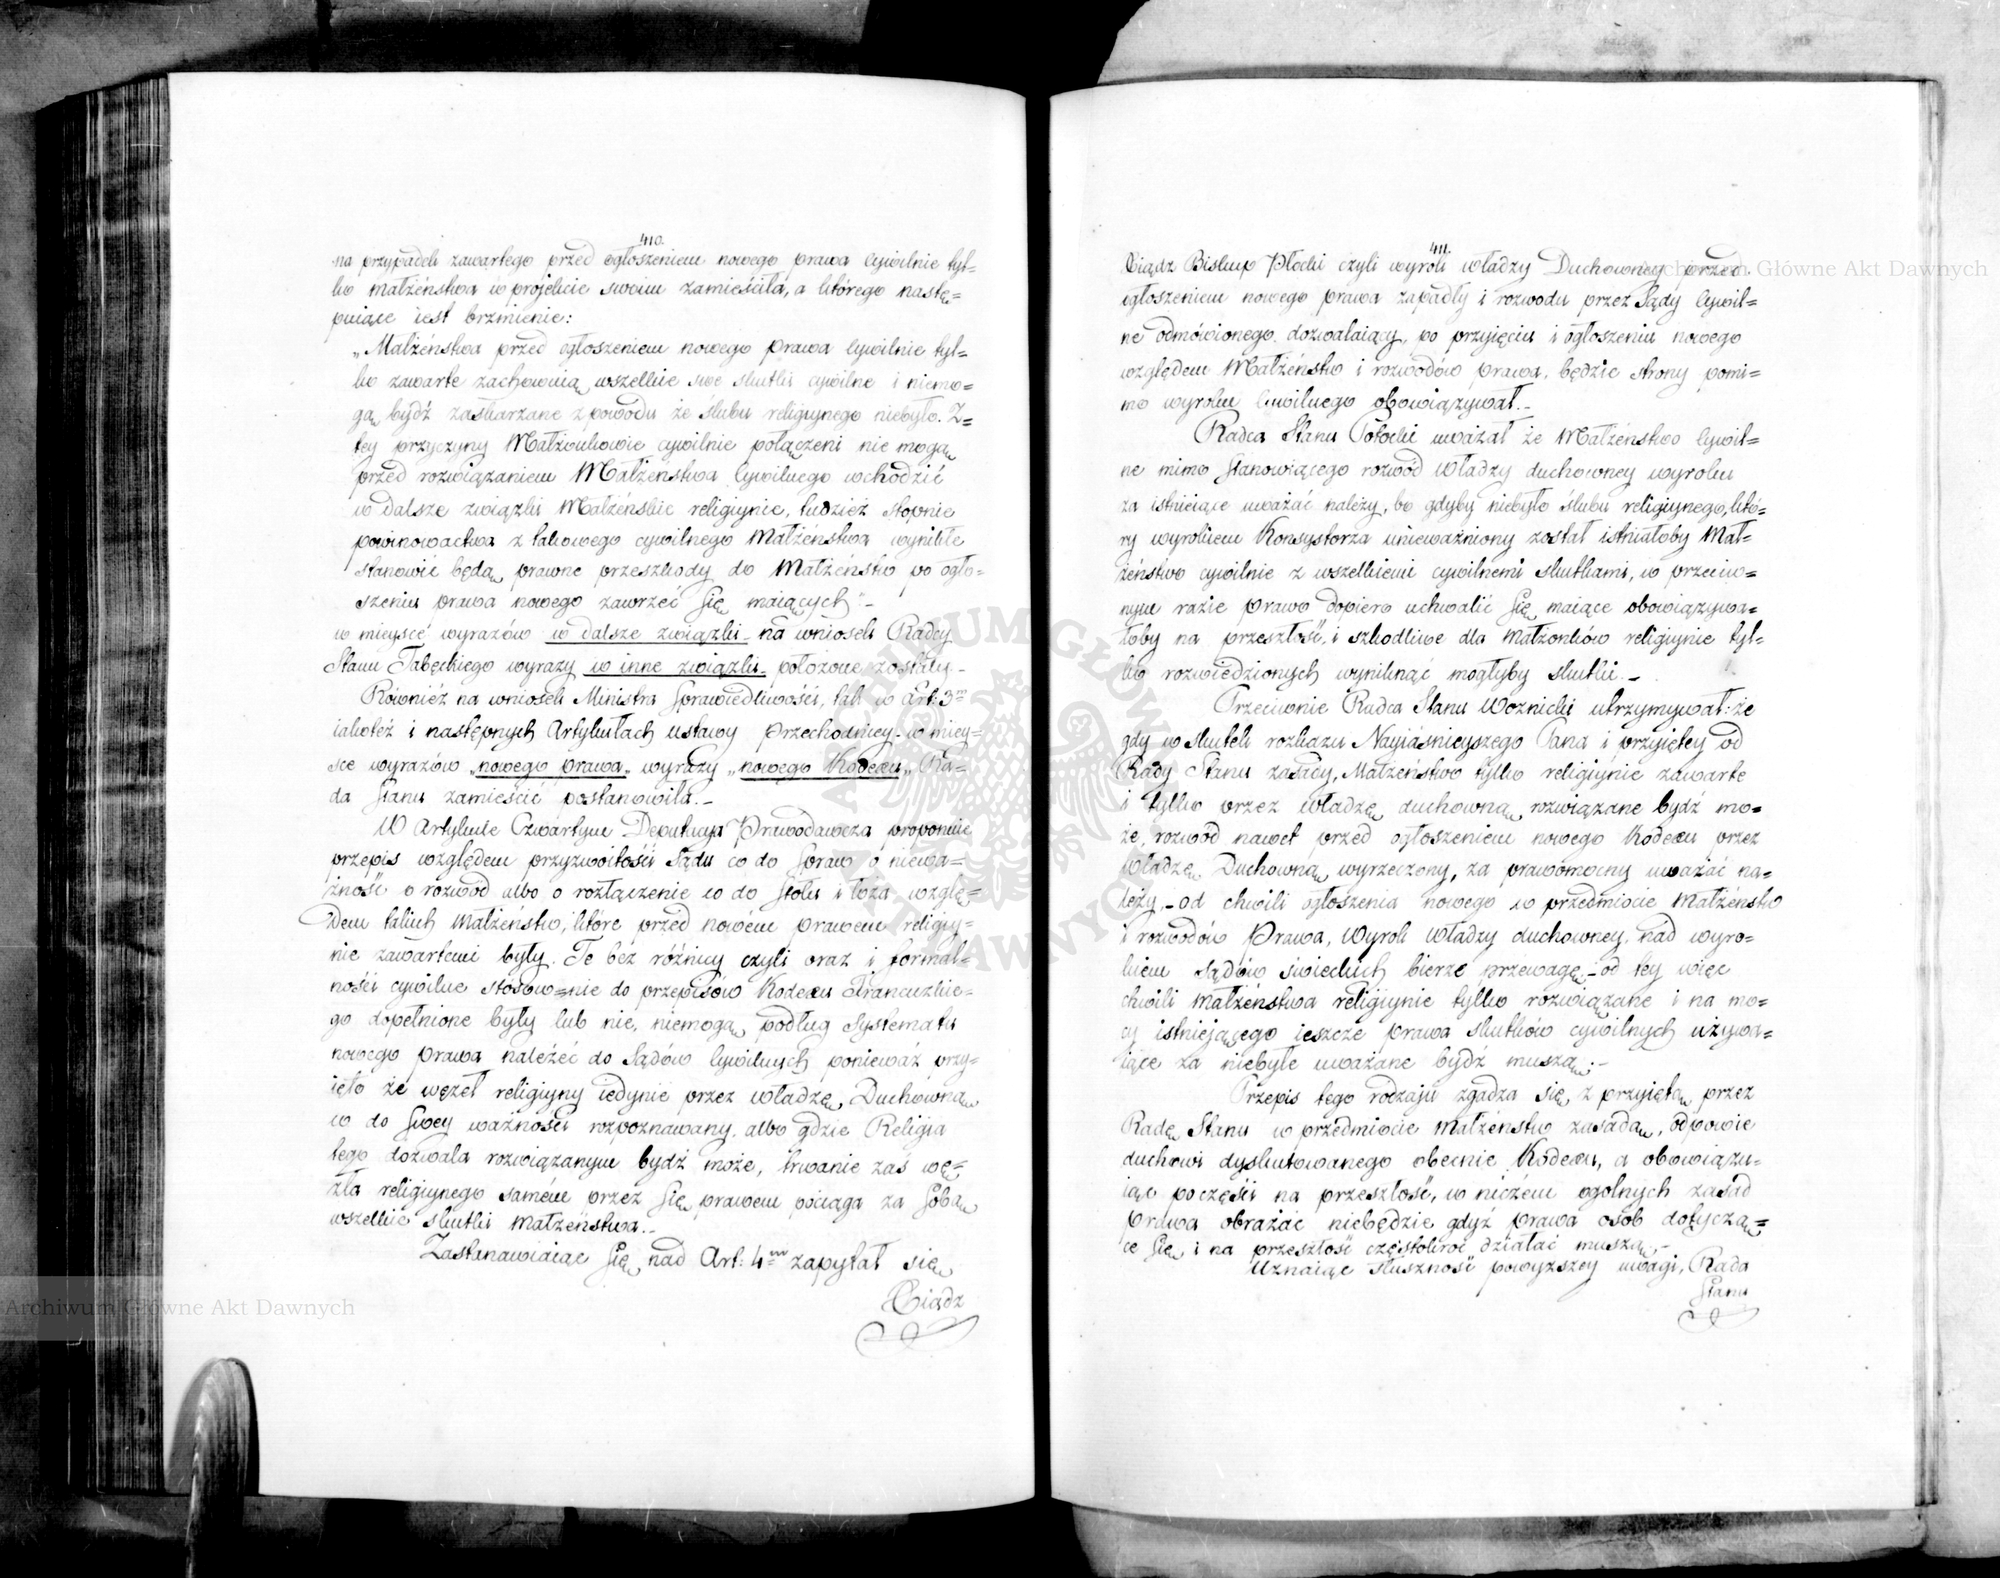 410.
na przypadek zawartego przed ogłoszeniem nowego prawa cywilnie tyl=
ko małżeństwa w projekcie swoim zamieściła, a którego nastę=
puiące iest brzmienie:
„Małżeństwa przed ogłoszeniem nowego prawa cywilnie tyl=
ko zawarte zachowuią wszelkie swe skutki cywilne i niemo=
gą bydź zaskarżane z powodu że ślubu religiynego niebyło. Z=
tey przyczyny Małżonkowie cywilnie połączeni nie mogą
przed rozwiązaniem Małżeństwa Cywilnego wchodzić
w dalsze związki Małżeńskie religiynie, tudzież stopnie
powinowactwa z takowego cywilnego Małżeństwa wynikłe
stanowić będą prawne przeszkody do Małżeństw po ogło-
szeniu prawa nowego zawrzeć się maiących" -
w mieysce wyrazów w dalsze związki - na wniosek Radcy
Stanu Tabęckiego wyrazy w inne związki - położone zostały -
Również na wniosek Ministra Sprawiedliwości, tak w Art: 3m
iakoteż i następnych Artykułach ustawy Przechodniey - w miey=
sce wyrazów „nowego prawa„ wyrazy „nowego Kodexu„ Ra=
da Stanu zamieścić postanowiła. -
W Artykule Czwartym Deputacya Prawodawcza proponuie
przepis względem przyzwoitości Sądu co do Spraw o niewa=
żność o rozwód albo o rozłączenie co do Stołu i łoża wzglę=
dem takich Małżeństw, które przed nowém prawem religiy=
nie zawartemi były. Te bez różnicy czyli oraz i formal=
ności cywilne stósow=nie do przepisów Kodexu Francuzkie=
go dopełnione były lub nie, niemogą podług Systematu
nowego prawa należeć do Sądów Cywilnych ponieważ przy=
ięto że węzeł religiyny iedynie przez władzę Duchówną
co do swey ważności rozpoznawany, albo gdzie Religia
tego dozwala rozwiązanym bydź może, trwanie zaś wę=
zła religiynego samém przez się prawem pociąga za sobą
wszelkie skutki Małżeństwa. -
Zastanawiaiąc się nad Art: 4m zapytał się
Xiądz
411.
Xiądz Biskup Płocki czyli wyrok władzy Duchowney przed
ogłoszeniem nowego prawa zapadły i rozwodu przez Sądy Cywil=
ne odmówionego dozwalaiący, po przyięciu i ogłoszeniu nowego
względem Małżeństw i rozwodów prawa, będzie strony pomi=
mo wyroku Cywilnego obowiązywał. -
Radca Stanu Potocki uważał że Małżeństwo Cywil=
ne mimo stanowiącego rozwód władzy duchowney wyroku
za istnieiące uważać należy, bo gdyby niebyło ślubu religiynego, któ=
ry wyrokiem Konsystorza unieważniony został istniałoby Mał=
żeństwo cywilnie z wszelkiemi cywilnemi skutkami, w przeciw=
nym razie prawo dopiero uchwalić się maiące obowiązywa=
łoby na przeszłość, i szkodliwe dla małżonków religiynie tyl=
ko rozwiedzionych wyniknąć mogłyby skutki. -
Przeciwnie Radca Stanu Woznicki utrzymywał: że
gdy w skutek rozkazu Nayiaśnieyszego Pana i przyiętey od
Rady Stanu zasady, Małżeństwo tylko religiynie zawarte
i tylko przez władzę duchowną rozwiązane bydź mo=
że, rozwód nawet przed ogłoszeniem nowego Kodexu przez
Władzę Duchowną wyrzeczony, za prawomocny uważać na=
leży, - od chwili ogłoszenia nowego w przedmiocie Małżeństw
i rozwodów Prawa, Wyrok władzy duchowney, nad wyro=
kiem sądów świeckich bierze przewagę - od tey więc
chwili małżeństwa religiynie tylko rozwiązane i na mo=
cy istniejącego ieszcze prawa skutków cywilnych używa=
iące za niebyłe uważane bydź muszą: -
Przepis tego rodzaju zgadza się z przyiętą przez
Radę Stanu w przedmiocie Małżeństw zasadą, odpowie
duchowi dyskutowanego obecnie Kodexu, a obowiązu=
iąc poczęści na przeszłość, w niczém ogólnych zasad
prawa obrażać niebędzie gdyż prawa osób dotyczą=
ce się i na przeszłość częstokroć działać muszą -
Uznaiąc słuszność powyższey uwagi, Rada
Stanu